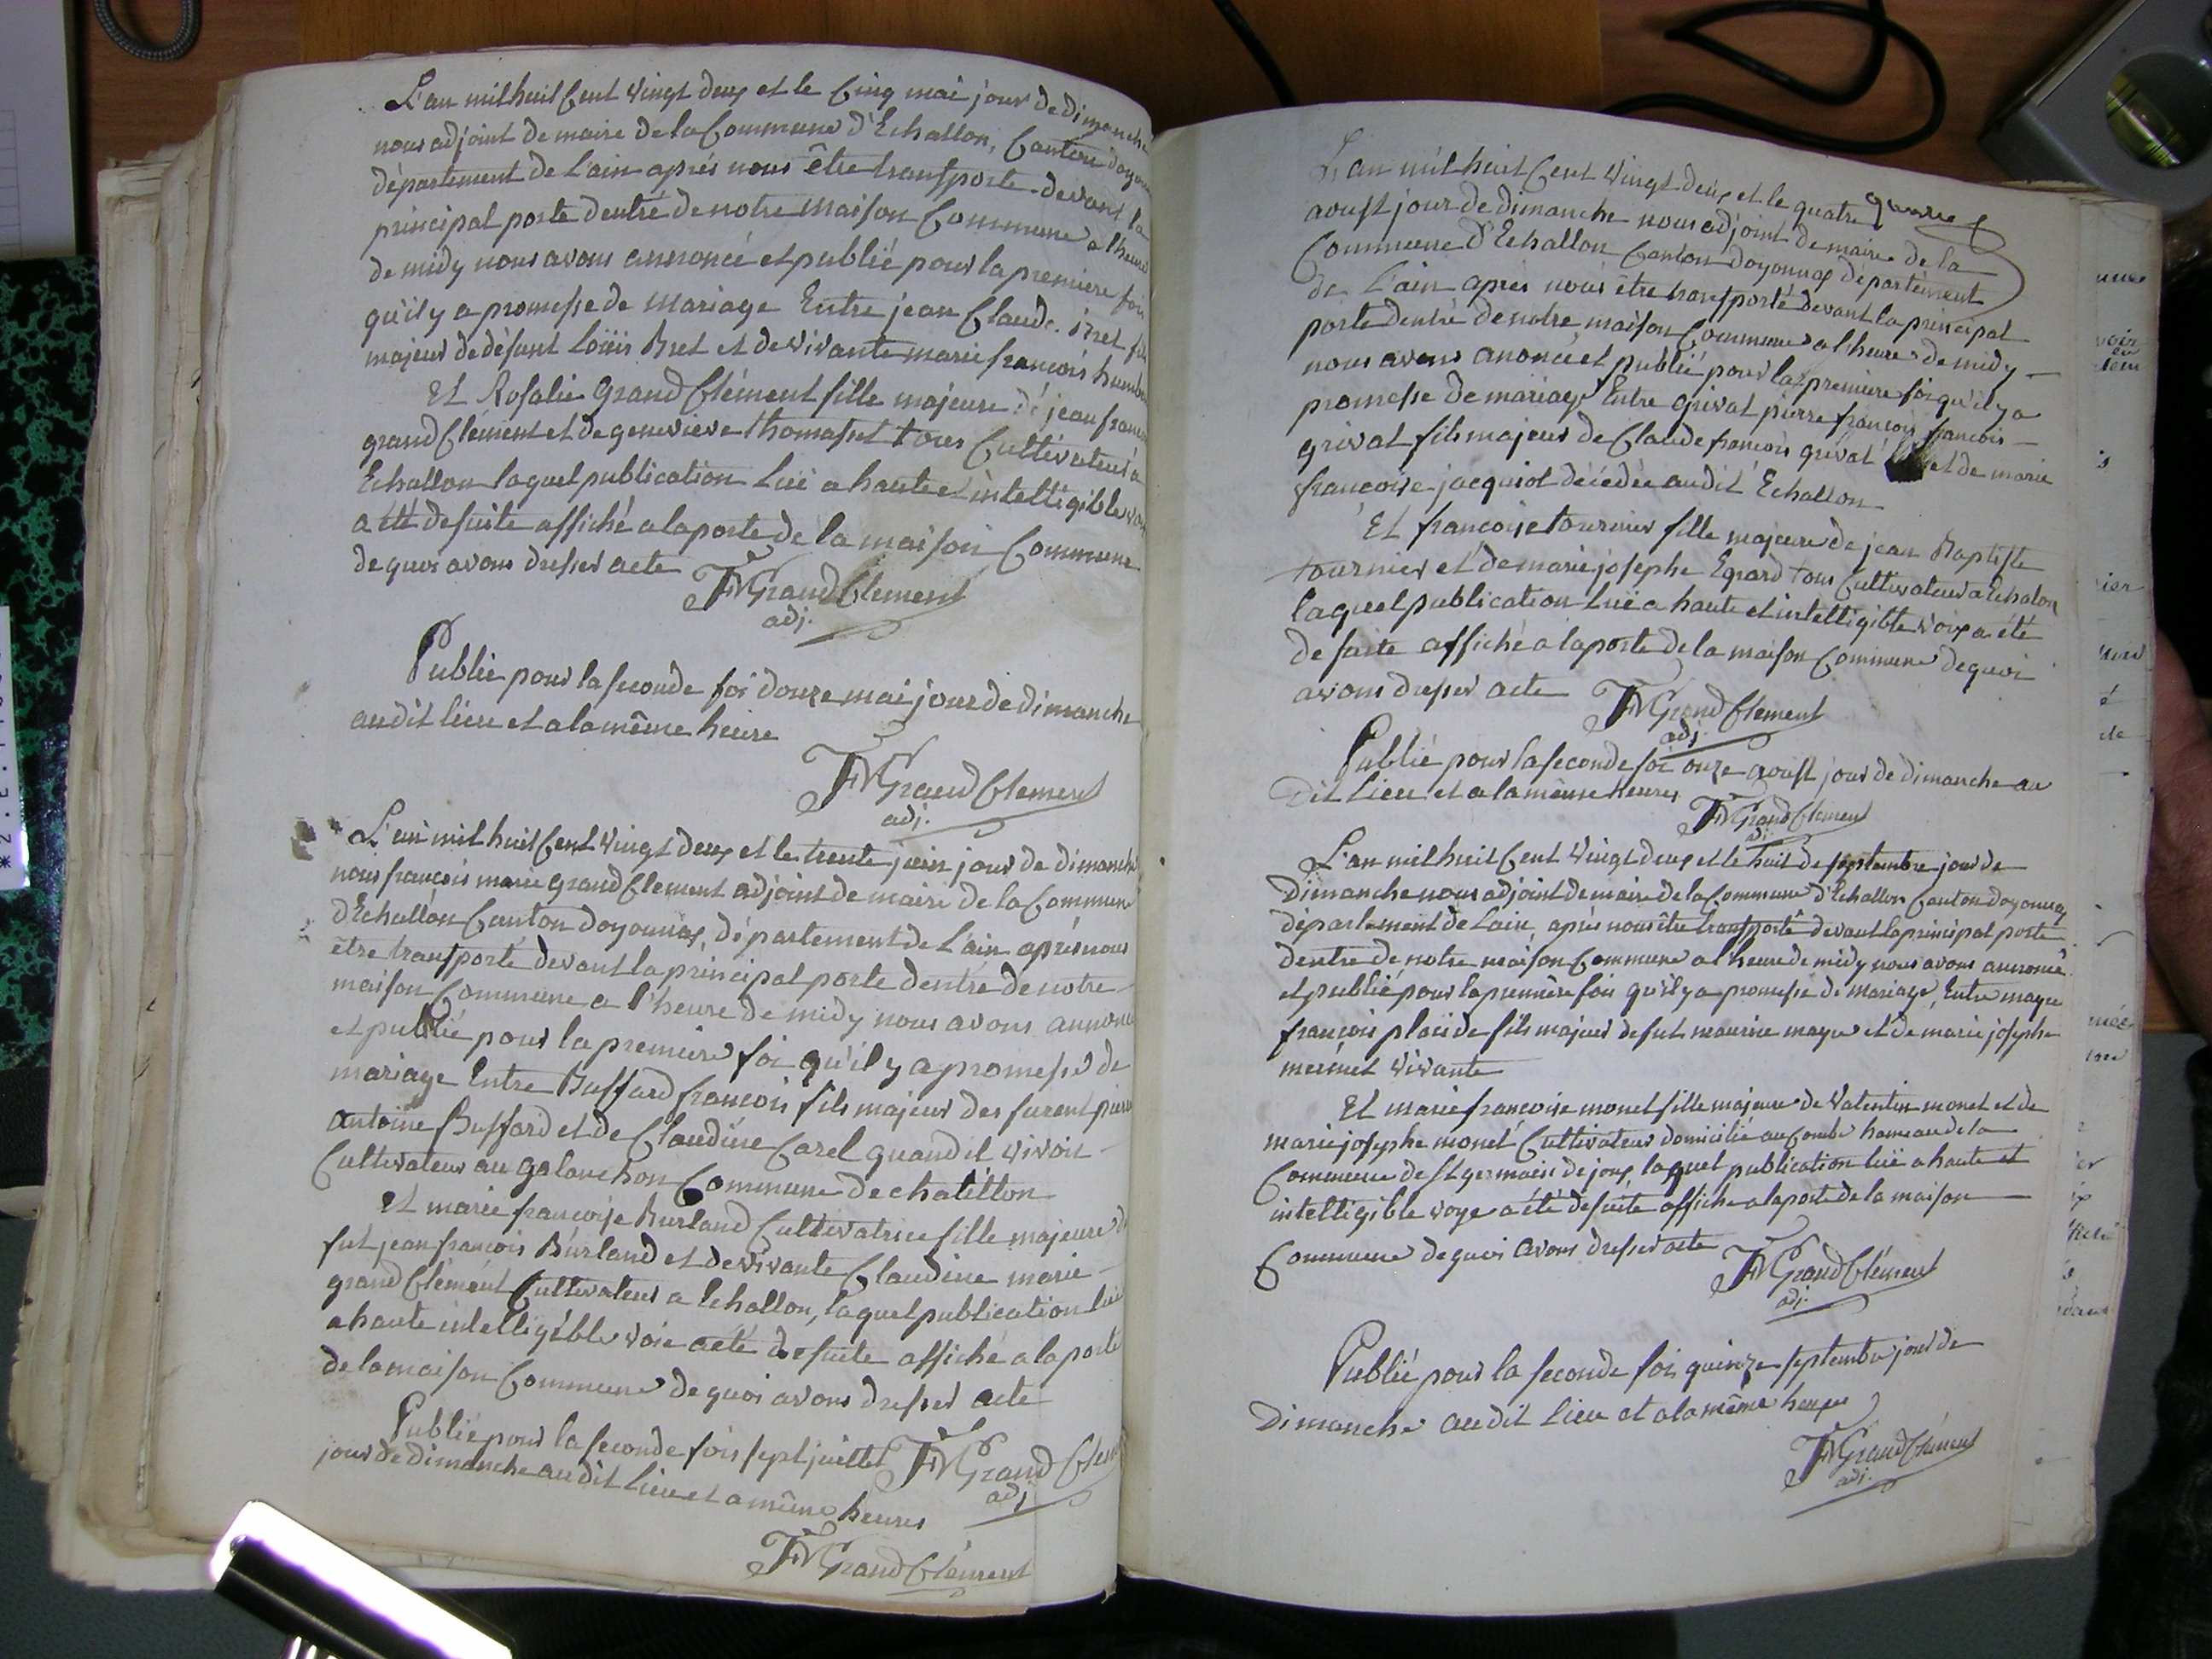 L'an mil huit Cent vingt deux et le Cinq mai jour de dimanche
nous adjoint de maire de la Commune d'Echallon, Canton doyonnax
département de L'ain après nous être transporte devant la
principal porte dentré de notre maison Commune a lheure
de midy nous avons annoncé et publié pour la premiere foi
qu'il y a promesse de mariage Entre jean Claude Bret fils
majeur de défunt Loüis Bret et de vivante marie françois humbert
Et Rosalie Grand Clément fille majeure de jean françois
grand Clément et de genevieve thomasset tous Cultivateurs a
Echallon laquel publication Luë a haute et intelligible voix
a été de suite affiché a la porte de la maison Commune
de quoi avons dresser acte FM Grand Clement
adj.
Publié pour la seconde foi douze mai jour de dimanche
audit lieu et a la même heure
FM Grand Clement
adj.
L'an mil huit Cent vingt deux et le trente juin jour de dimanche
nous françois marie Grand Clement adjoint de maire de la Commune
d'Echallon Canton doyonnax, département de L'ain après nous
être transporté devant la principal porte dentré de notre
maison Commune a l'heure de midy nous avons annoncé
et publié pour la premiere foi qu'il y a promesse de
mariage Entre Buffard françois fils majeur des furent pierre
antoine Buffard et de Claudine Carel quand il vivoit
Cultivateur au galanchon Commune de chatillon
et marie françoise Burland Cultivatrice fille majeure de
fut jean françois Burland et de vivante Claudine marie
grand Clément Cultivateur a Echallon, laquel publication luë
a haute intelligible voie a été de suite affiché a la porte
de la maison Commune de quoi avons dresser acte
Publié pour la seconde fois sept juillet FM Grand Clement
jour de dimanche audit lieu et a même heures adj
FM Grand Clément
L'an mil huit Cent vingt deux et le quatre
aoust jour de dimanche nous adjoint de maire de la
Commune d'Echallon Canton doyonnax département
de L'ain après nous être transporté devant la principal
porte dentré de notre maison Commune a l'heure de midy
nous avons anoncé et publié pour la premiere foi qu'il y a
promesse de mariage Entre grivat pierre françois françois
grivat fils majeur de Claude françois grivat et de marie
françoise jacquiot décédée audit Echallon
Et françoise tournier fille majeure de jean Baptiste
tournier et de marie josephe Egard tous Cultivateur a Echalon
laquel publication luë a haute et intelligible voix a été
de suite affiché a la porte de la maison Commune de quoi
avons dresser acte FM Grand Clement
adj
Publié pour la seconde foi onze aoust jour de dimanche au
dit Lieu et a la même heures FM Grand Clement
adj
L'an mil huit Cent vingt deux et le huit de septembre jour de
dimanche nous adjoint de maire de la Commune d'Echallon Canton doyonnax
département de Lain, après nous être transporté devant la principal porte
dentre de notre maison Commune a l heure de midy nous avons annoncé
et publié pour la première foi qu'il y a promesse de mariage Entre
françois placide fils majeur de fut maurice et de marie josephe
mermet vivante
Et marie françoise monet fille majeure de Valentin monet et de
marie josephe monet Cultivateur domicilié au Combe hameau de la
Commune de St germain de joux, laquel publication luë a haute et
intelligible voye a été de suite affiche a la porte de la maison
Commune de quoi avons dresser acte FM Grand Clément
adj.
Publié pour la seconde foi quinze septembre jour de
dimanche audit Lieu et a la même heure
FM Grand Clément
adj.